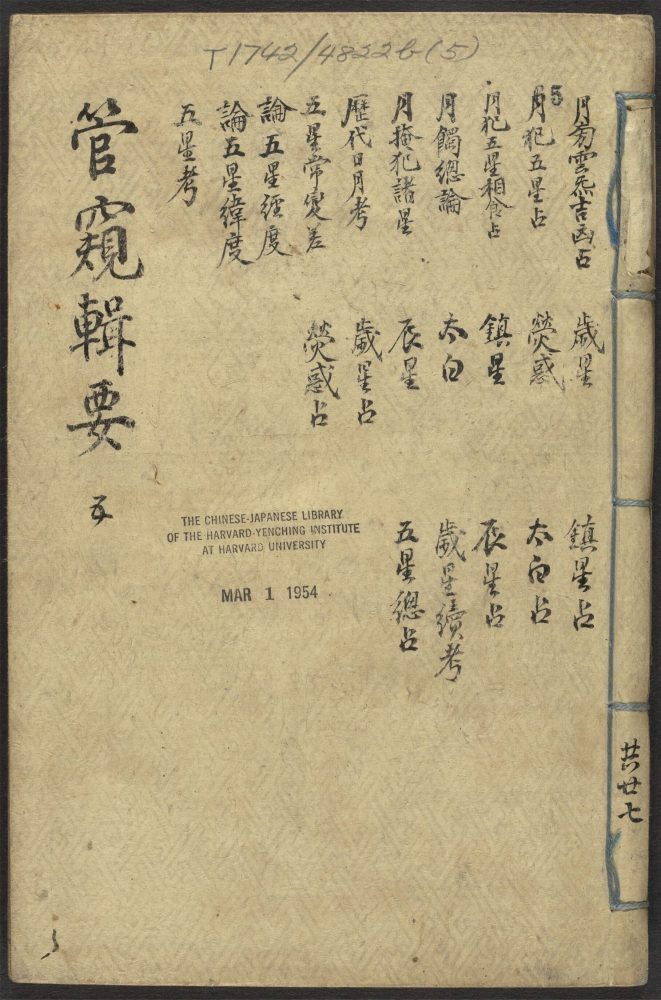 T1742/4822b(5)
5
月旁雲炁吉凶占
月犯五星占
月犯五星相食占
月蝕總論
月掩犯諸星
歷代日月考
五星常變差
論五星經度
論五星緯度
五星考
歲星
熒惑
鎮星
太白
辰星
歲星占
熒惑占
鎮星占
太白占
辰星占
歲星續考
五星總占
管窺輯要 五
THE CHINESE-JAPANESE LIBRARY
OF THE HARVARD-YENCHING INSTITUTE
AT HARVARD UNIVERSITY
MAR 1 1954
共廿七